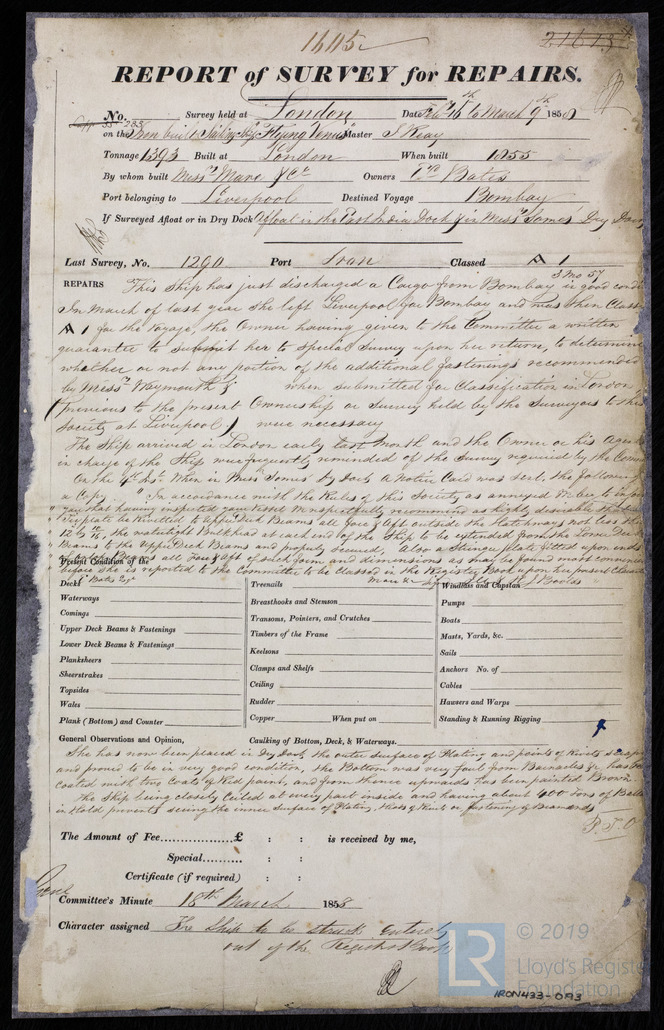 1605
21613
REPORT of SURVEY for REPAIRS.
No. Survey held at London Date Feb 16th to March 9th 1858
on the Iron built Ship "Flying Venus" Master J Keay
Tonnage 1393 Built at London When built 1855
By whom built Messrs Mare & Co Owners Bates
Port belonging to Liverpool Destined Voyage Bombay
If Surveyed Afloat or in Dry Dock Afloat in the East India Dock & in Messrs Somes' Dry Dock
Last Survey, No. 1290 Port Iron Classed A 1
5 Mo 57
REPAIRS This Ship has just discharged a Cargo from Bombay in good
In March of last year she left Liverpool for Bombay and was then
A 1 for the Voyage, the Owner having given to the Committee a written
guarantee to submit her to Special Survey upon her return, to determine
whether or not any portion of the additional fastenings recommended
by Messrs Waymouth & when submitted for Classification in London
(previous to the present Ownership or Survey held by the Surveyors to this
Society at Liverpool) were necessary
The Ship arrived in London early last month and the Owner or his
in charge of the Ship were frequently reminded of the Survey required by the
On the 4th Inst. When in Messrs Somes' Dry Dock a Notice Card was sent, the following
a Copy. "In accordance with the Rules of this Society as annexed
you that having inspected your Vessel We respectfully recommend as highly desirable
plate be Rivetted to Upper Deck Beams all fore & aft outside the Hatchways not less than
12 the watertight Bulkheads at each end of the Ship to be extended from the Lower Deck
Beams to the Upper Deck Beams and properly secured, Also a Stringer plate fitted upon ends
of Beams fore & aft of such form and dimensions as may be found most convenient
before she is reported to the Committee to be Classed in the Register Book upon her present Character
Present Condition of the
Decks
Waterways
Comings
Upper Deck Beams & Fastenings
Lower Deck Beams & Fastenings
Planksheers
Sheerstrakes
Topsides
Wales
Plank (Bottom) and Counter
Treenails
Breasthooks and Stemson
Transoms, Pointers, and Crutches
Timbers of the Frame
Keelsons
Clamps and Shelfs
Ceiling
Rudder
Copper When put on
Windlass and Capstan
Pumps
Boats
Masts, Yards, &c.
Sails
Anchors No. of
Cables
Hawsers and Warps
Standing & Running Rigging
General Observations and Opinion, Caulking of Bottom, Deck, & Waterways.
She has now been placed in Dry Dock the outer surface of Plating and points of Rivets scraped
and proved to be in very good condition, the Bottom was very foul from Barnacles &c has been
coated with two Coats of Red paint, and from thence upwards has been painted Brown
the Ship being closely Ceiled at every part inside and having about 400 tons of
in hold prevents seeing the inner surface of Plating, heads of Rivets or fastening of Diamonds
P.T.O
The Amount of Fee £ : : is received by me,
Special : :
Certificate (if required) : :
Committee's Minute 18th March 1858
Character assigned The Ship to be struck entirely
out of the Register Book
LR
© 2019
Lloyd's Register
Foundation
IRON433-0193